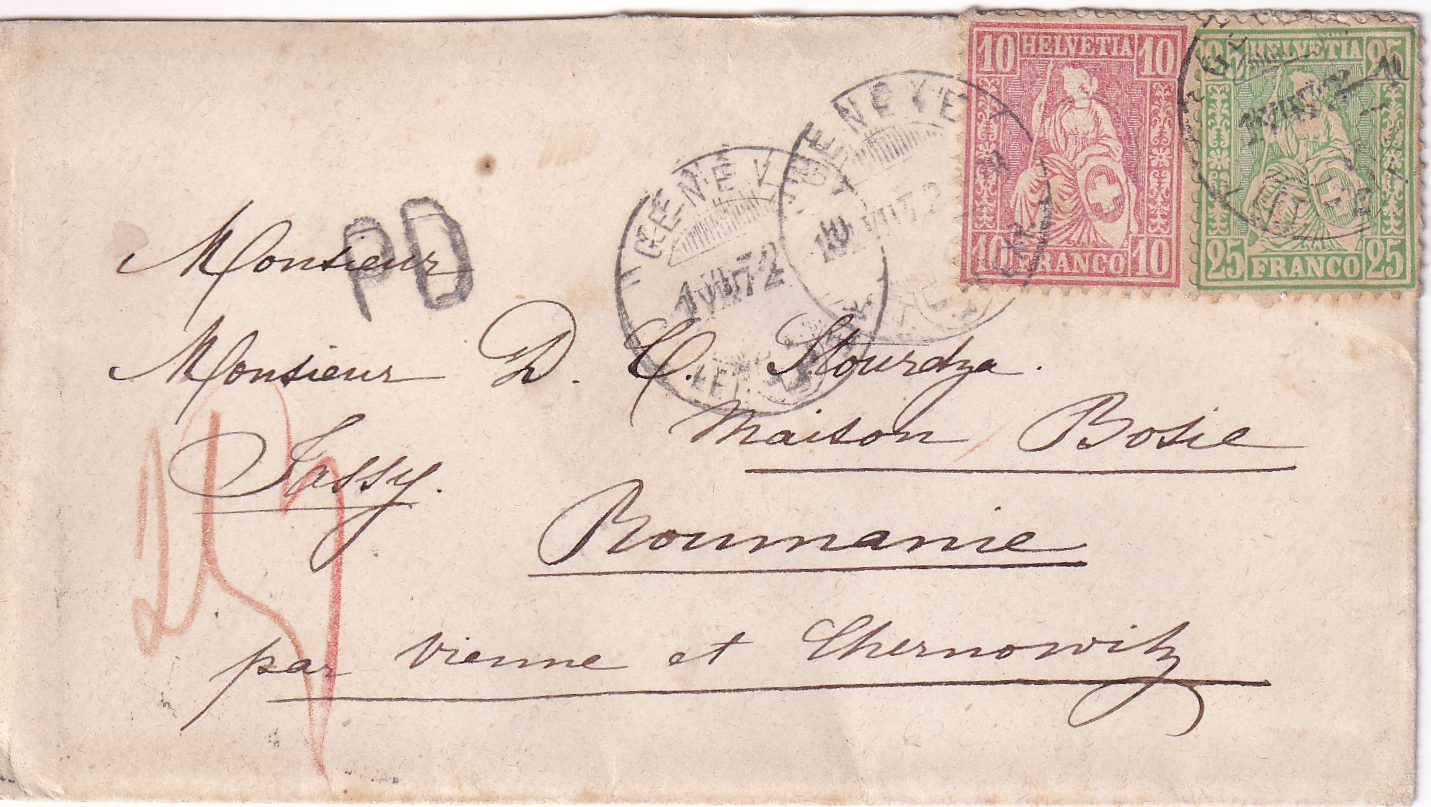 10 HELVETIA 10
10 FRANCO 10
HELVETIA 25
25 FRANCO 25
GENÈVE
1 VII 72
GENÈVE
VII 72
PD
Monsieur
Monsieur D. C. Stourdza.
Maison Bosie
Jassy.
Roumanie
par Vienne et Chernowitz